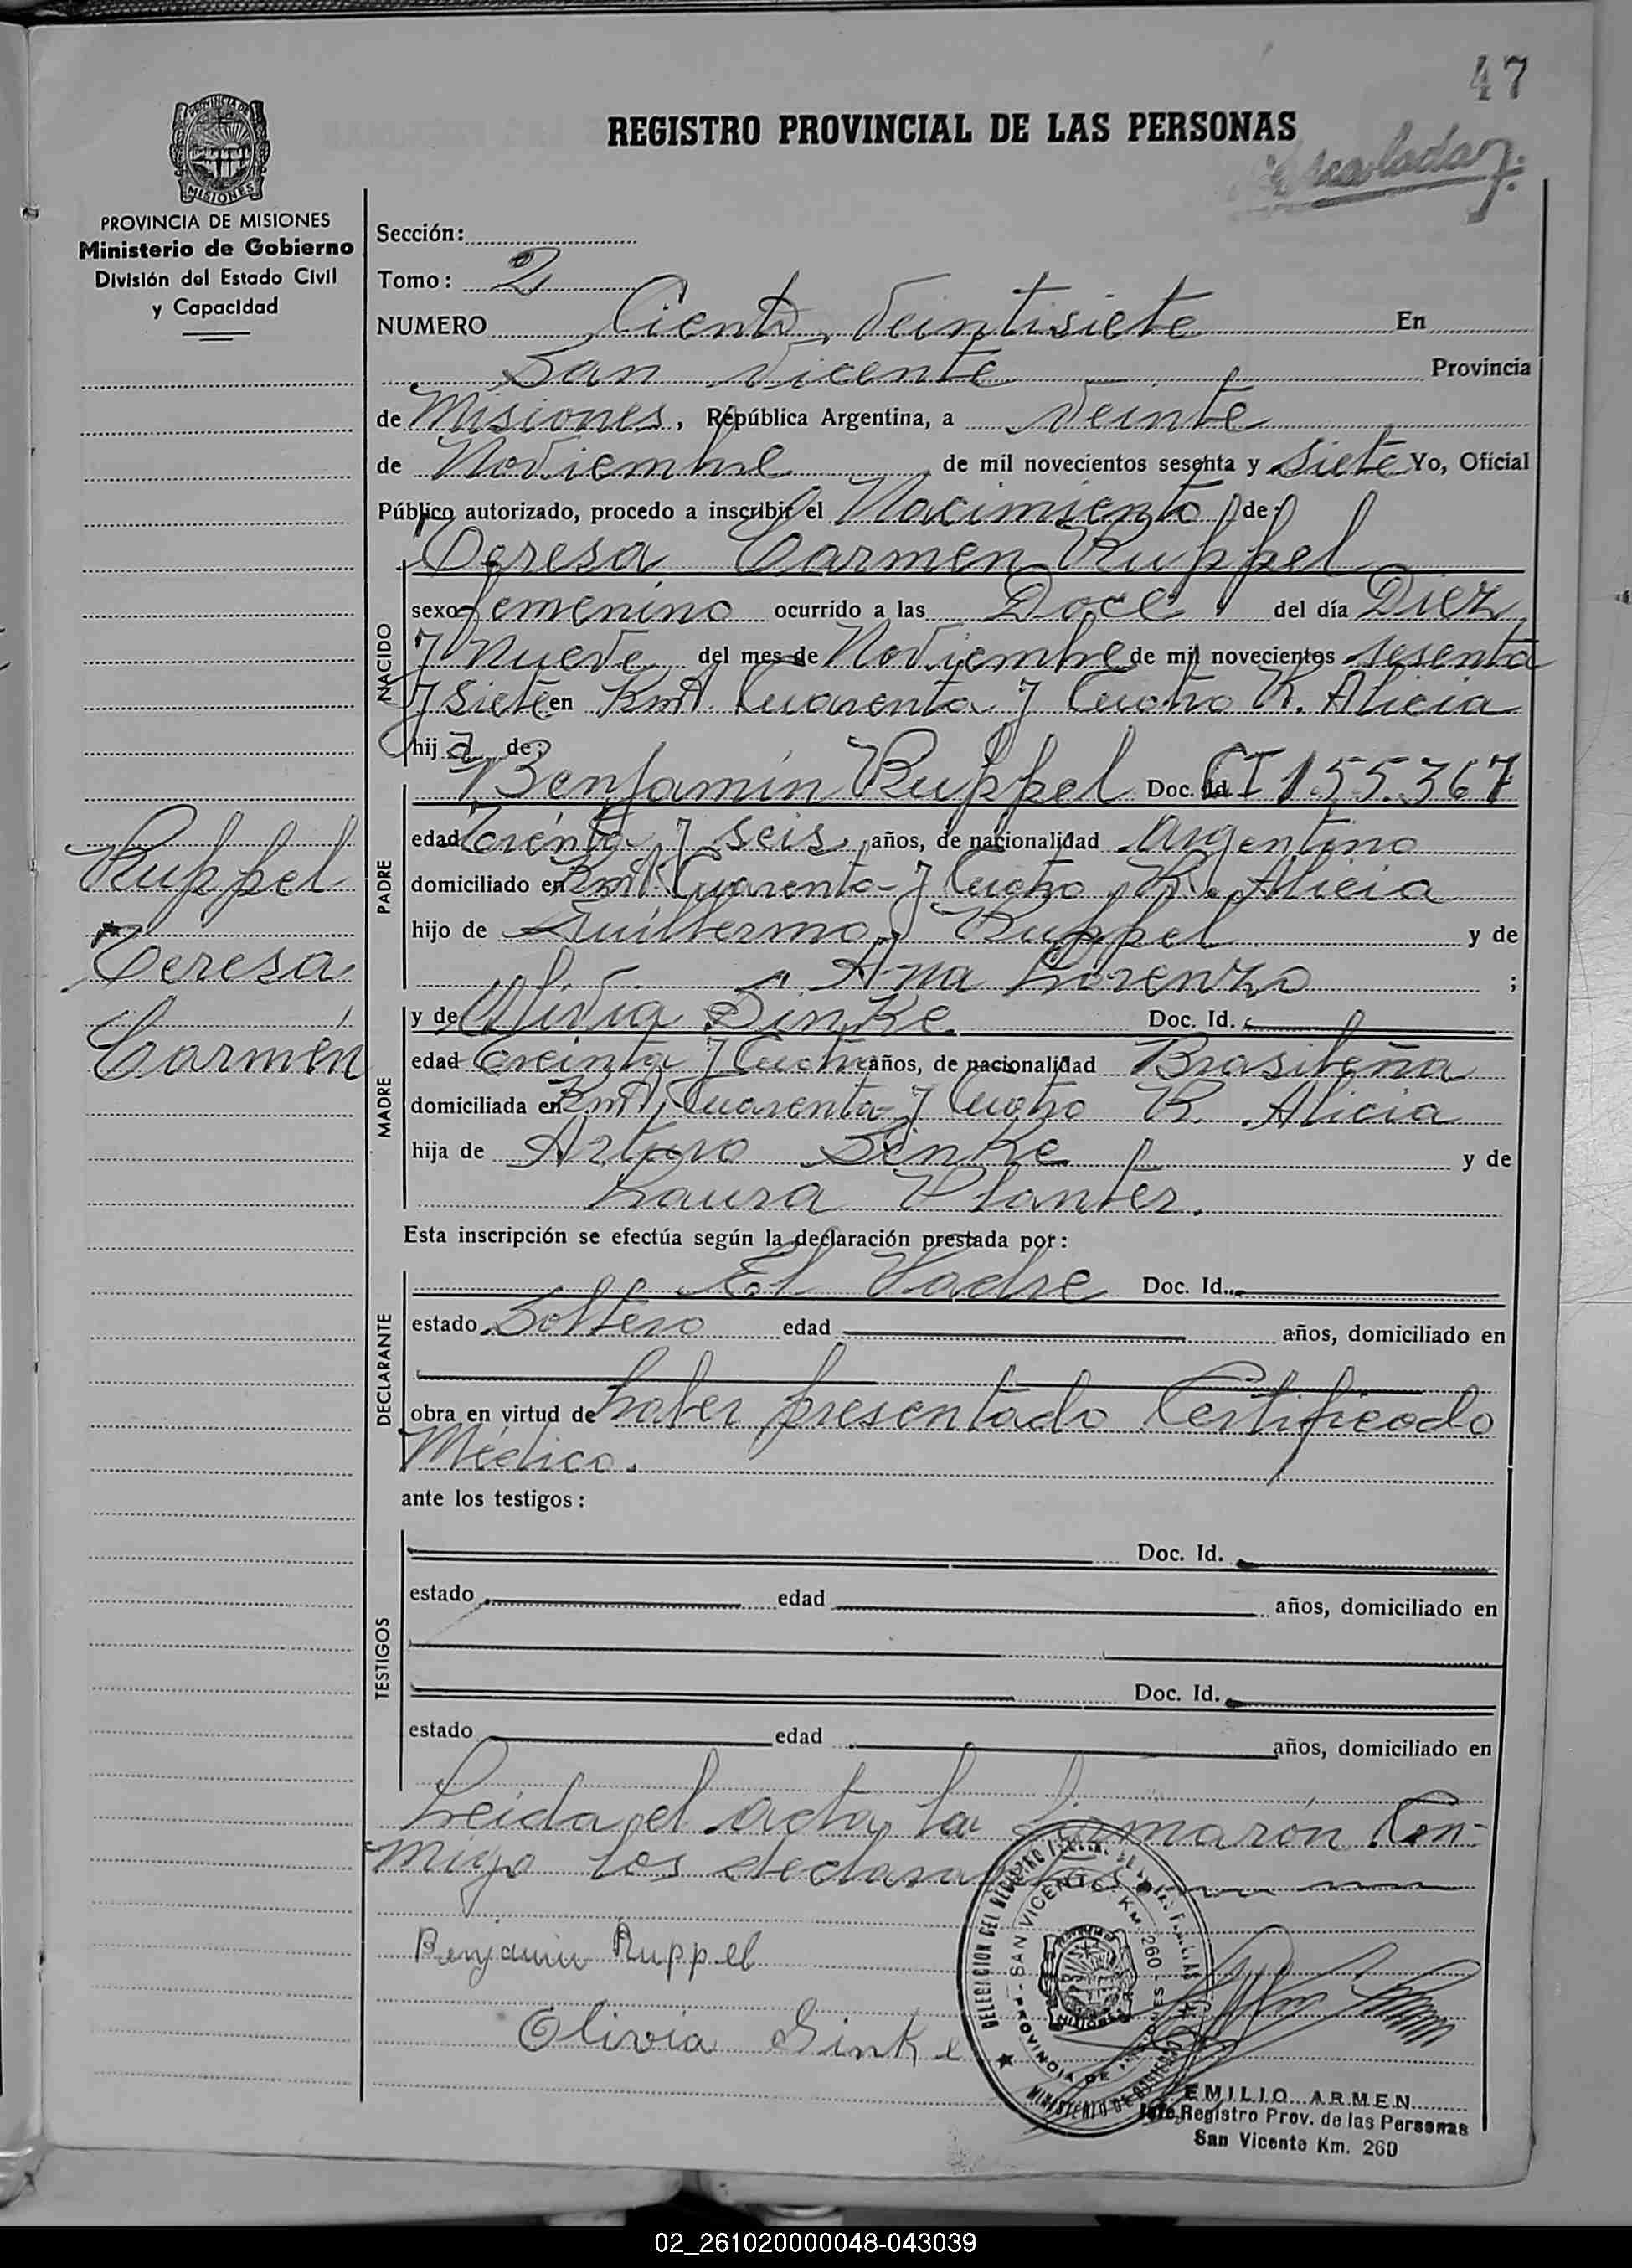 47
REGISTRO PROVINCIAL DE LAS PERSONAS
PROVINCIA DE
MISIONES
PROVINCIA DE MISIONES
Ministerio de Gobierno
División del Estado Civil
y Capacidad
Sección:
Tomo: 2
NUMERO Ciento Veintisiete En
San Vicente Provincia
de Misiones, República Argentina, a Veinte
de Noviembre de mil novecientos sesenta y Siete Yo, Oficial
Público autorizado, procedo a inscribir el Nacimiento de:
Teresa Carmen Ruppel
NACIDO
sexo femenino ocurrido a las Doce del día Diez
y Nueve del mes de Noviembre de mil novecientos sesenta
y Siete en Kmt. Cuarenta y Cuatro R. Alicia
hija de:
PADRE
Benjamín Ruppel Doc. Id. CI 155.367
edad Treinta y seis años, de nacionalidad Argentino
domiciliado en Kmt. Cuarenta y Cuatro R. Alicia
hijo de Guillermo Ruppel y de
Ana Lorenzo ;
Ruppel
Teresa
Carmen
MADRE
y de Olivia Sinke Doc. Id.
edad Treinta y Cuatro años, de nacionalidad Brasileña
domiciliada en Kmt. Cuarenta y Cuatro R. Alicia
hija de Arturo Sinke y de
Laura Planter.
Esta inscripción se efectúa según la declaración prestada por:
DECLARANTE
El Padre Doc. Id.
estado Soltero edad años, domiciliado en
obra en virtud de haber presentado Certificado
Médico.
ante los testigos:
TESTIGOS
Doc. Id.
estado edad años, domiciliado en
Doc. Id.
estado edad años, domiciliado en
Leida el acta, la firmarón Con-
migo los declarantes
Benjamin Ruppel
Olivia Sinke
DELEGACION DEL REGISTRO PROV. DE LAS PERSONAS
SAN VICENTE - KM. 260
PROVINCIA DE MISIONES
MINISTERIO DE GOBIERNO
EMILIO ARMEN
Jefe Registro Prov. de las Personas
San Vicente Km. 260
02_261020000048-043039